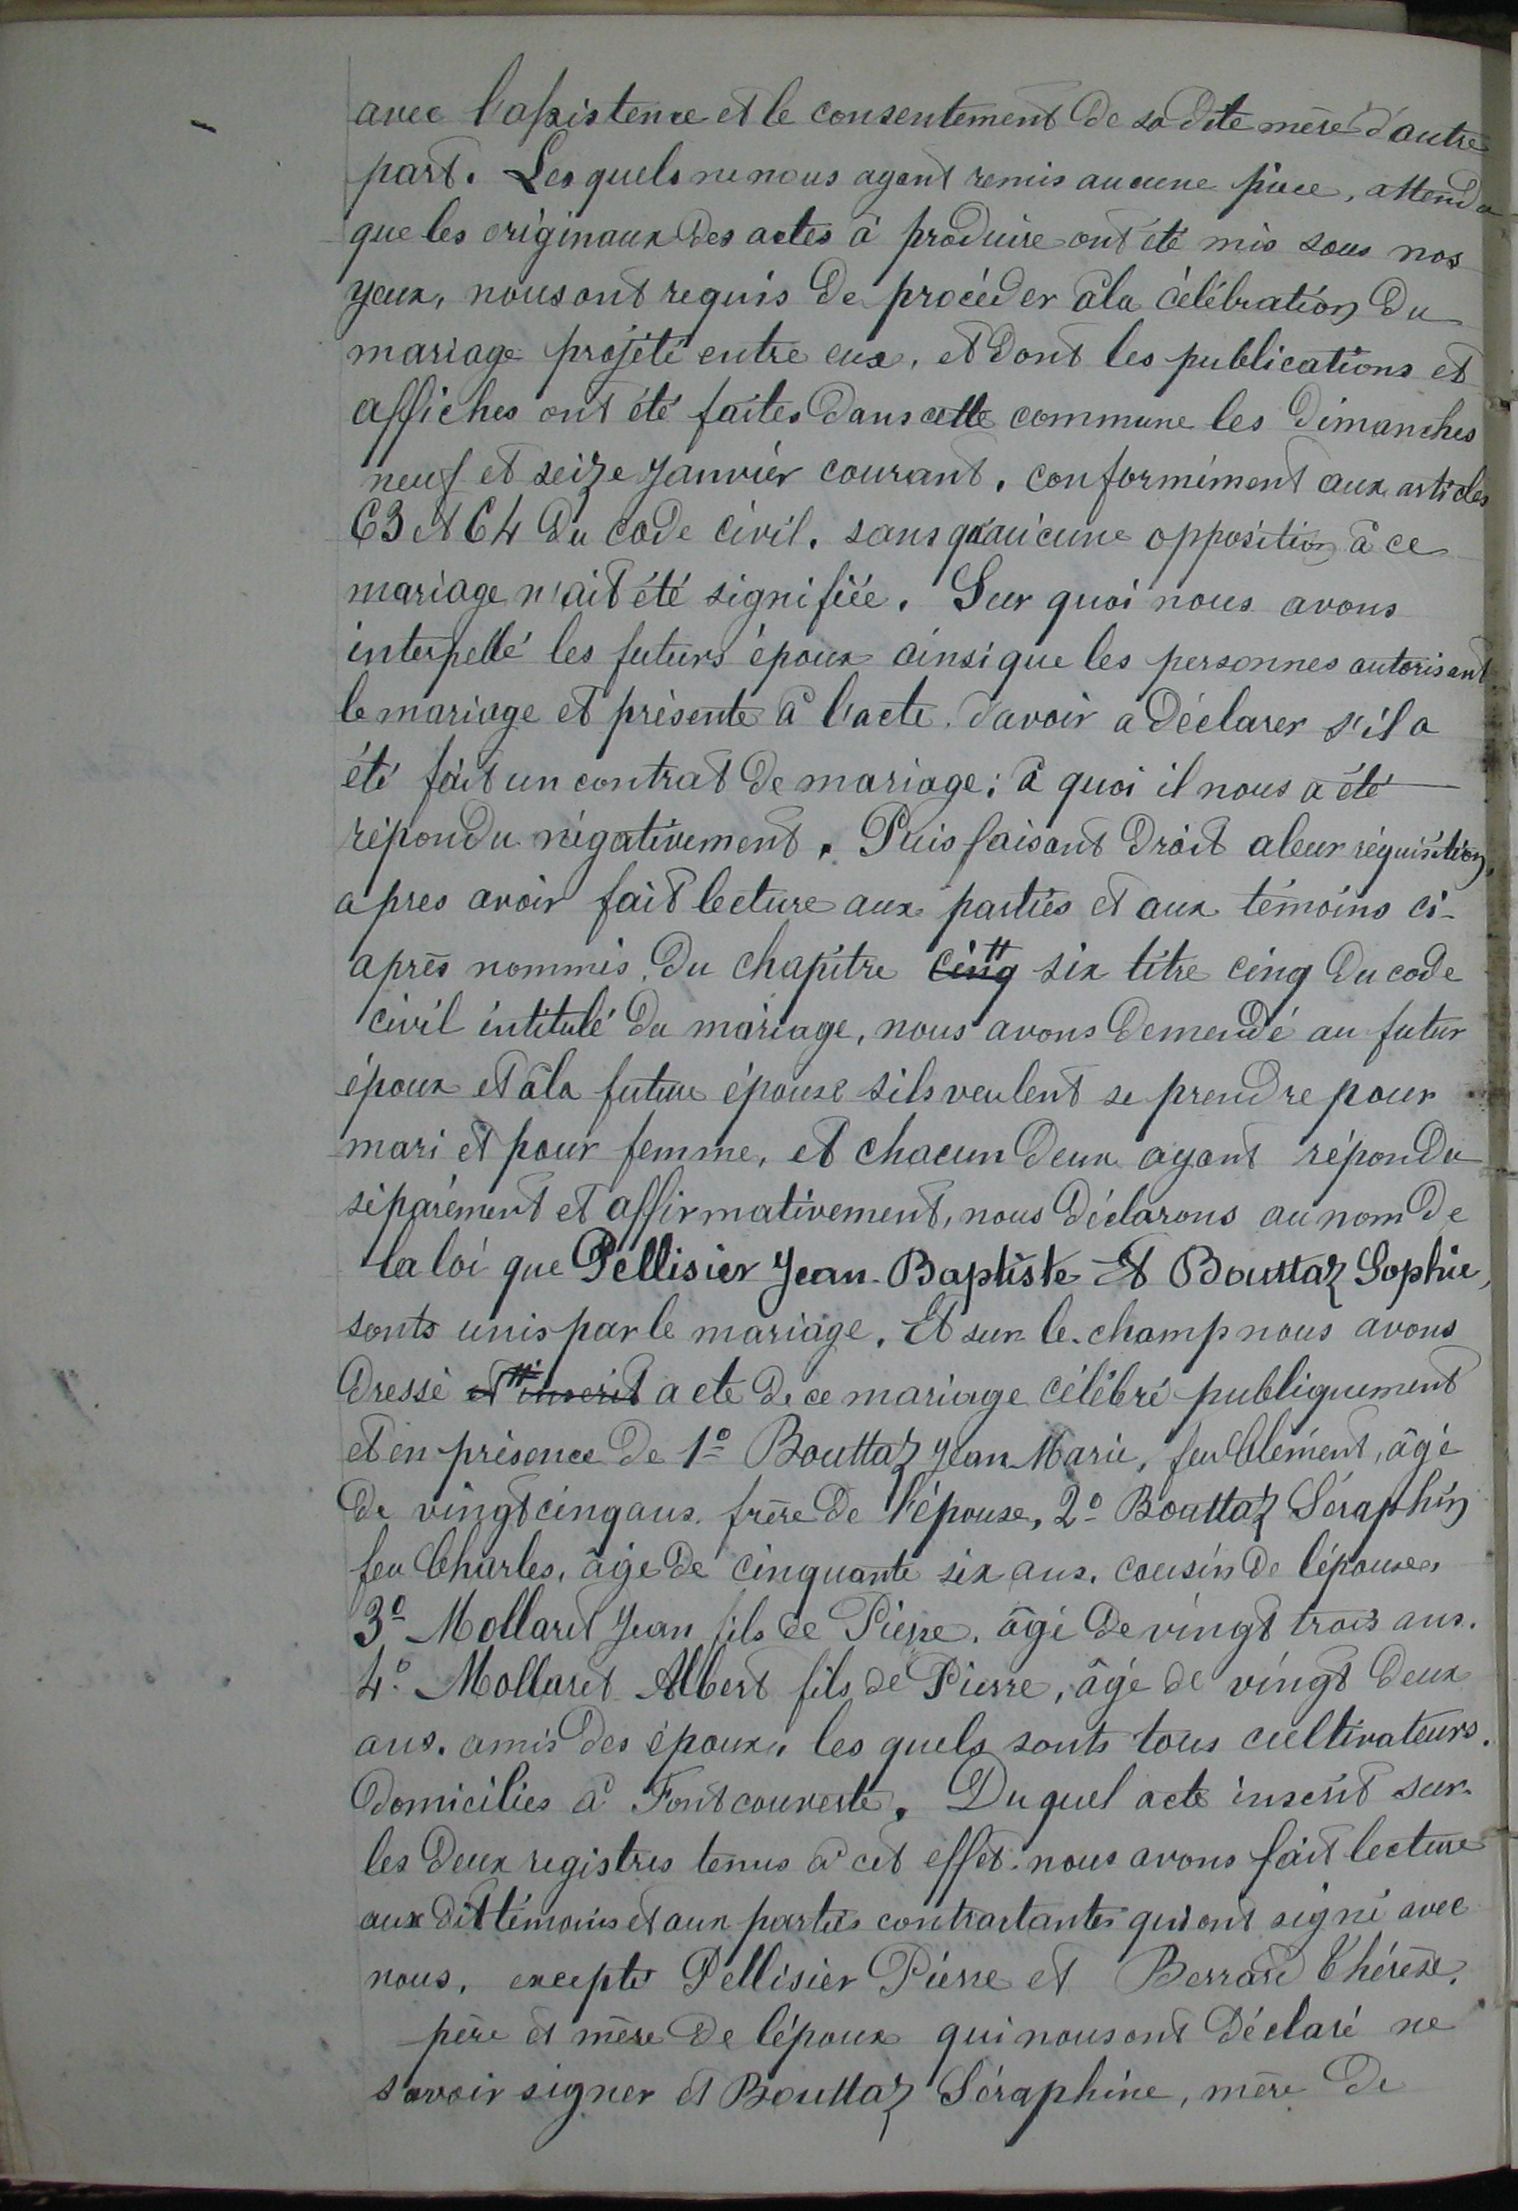 avec l'assistence et le consentement de sa dite mère d'autre
part. Lesquels ne nous ayant remis aucune pièce, attendu
que les originaux des actes à produire ont été mis sous nos
yeux, nous ont requis de procéder à la célébration du
mariage projeté entre eux, et dont les publications et
affiches ont été faites dans cette commune les dimanches
neuf et seize janvier courant, conformément aux articles
63 et 64 du code civil, sans qu'aucune opposition à ce
mariage n'ait été signifiée. Sur quoi nous avons
interpellé les futurs époux ainsi que les personnes autorisant
le mariage et présente à l'acte, d'avoir a déclarer s'il a
été fait un contrat de mariage; à quoi il nous a été
répondu négativement. Puis faisant droit a leur réquisition,
apres avoir fait lecture aux parties et aux témoins ci-
après nommés, du chapitre cinq six titre cinq du code
civil intitulé du mariage, nous avons demendé au futur
époux et à la future épouse s'ils veulent se prendre pour
mari et pour femme, et chacun deux ayant répondu
séparément et affirmativement, nous déclarons au nom de
la loi que Pellisier Jean-Baptiste et Bouttaz Sophie,
sonts unis par le mariage. Et sur le-champ nous avons
dressé et inscrit acte de ce mariage célébré publiquement
et en présence de 1º Bouttaz Jean-Marie, feu Clément, âgé
de vingt cinq ans, frère de l'épouse, 2º Bouttaz Séraphin
feu Charles, âgé de cinquante six ans, cousin de l'épouse,
3º Mollaret Jean fils de Pierre, âgé de vingt trois ans.
4º Mollaret Albert fils de Pierre, âgé de vingt deux
ans, amis des époux, les quels sonts tous cultivateurs.
domiciliés à Fontcouverte. Du quel acte inscrit sur
les deux registres tenus à cet effet, nous avons fait lecture
aux dit témoins et aux parties contractantes qui ont signé avec
nous, excepté Pellisier Pierre et Berrard Thérèse,
père et mère de l'époux qui nous ont déclaré ne
savoir signer et Bouttaz Séraphine, mère de